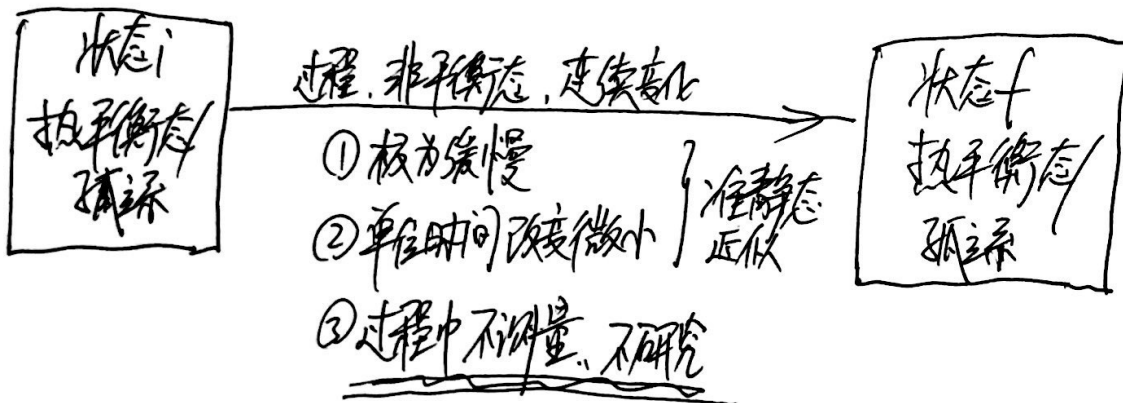 状态i
热平衡态/
孤立系
过程、非平衡态、连续变化
①极为缓慢
②单位时间改变微小
准静态
近似
③过程中不测量、不研究
状态f
热平衡态/
孤立系